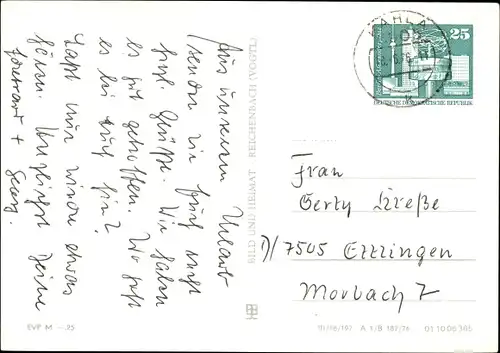 Aus unserem Urlaub
senden wir Euch recht
herzl. Grüße. Wir haben
es gut getroffen. Wo geht
es bei Euch hin?
Laßt mal wieder etwas
hören. Herzlichst Deine
+ Georg.
BILD UND HEIMAT REICHENBACH (VOGTL)
KAHLA
25
DEUTSCHE DEMOKRATISCHE REPUBLIK
Frau
Gerty Kreße
D/7505 Ettlingen
Morbach 7
EVP M -.25
A 1/B 187/76 01 10 06 386